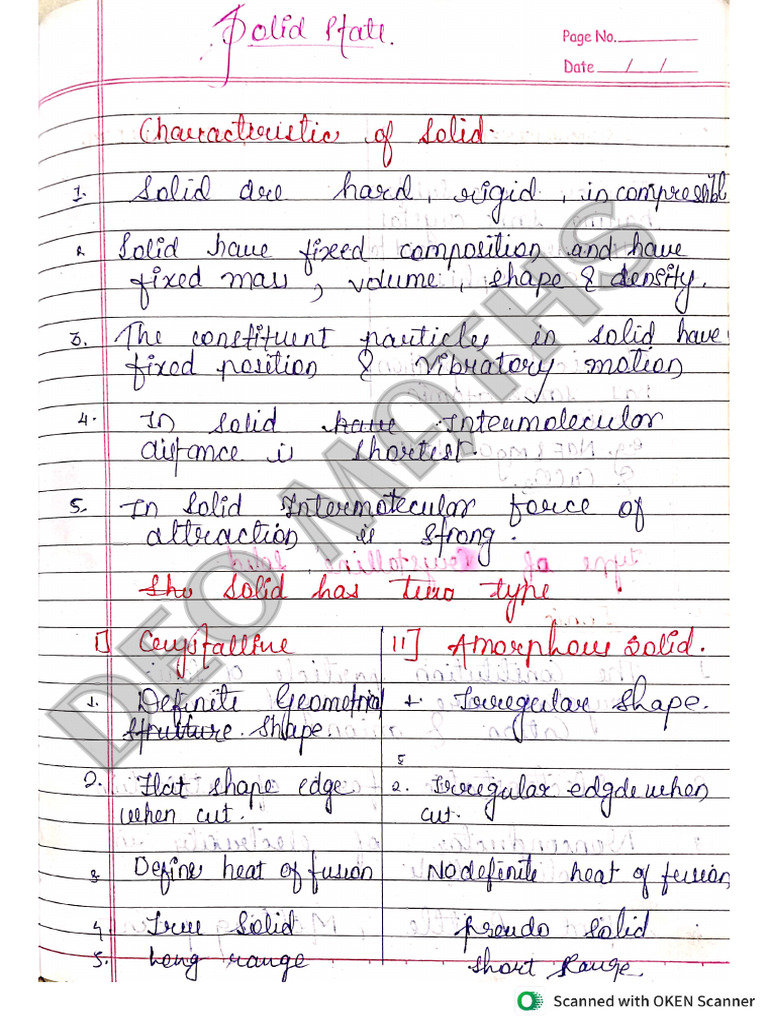 Solid State.
Page No.
Date / / 
Characteristic of Solid.
1. Solid are hard, rigid, incompressibl
2. Solid have fixed composition and have
fixed mass, volume, shape & density.
3. The constituent particles in solid have
fixed position & Vibratory motion
4. In solid have Intermolecular
distance is shortest.
5. In Solid Intermolecular force of
attraction is strong.
The Solid has two type
I] Crystalline
II] Amorphous Solid.
1. Definite Geometrial
Strutture Shape.
1. Irregular Shape.
2. Flat shape edge
when cut.
2. Irregular edgde when
cut.
3 Define heat of fusion
No definite heat of fusion
4 True Solid
pseudo Solid
5. Long range
Short Range.
DEO MATHS
Scanned with OKEN Scanner